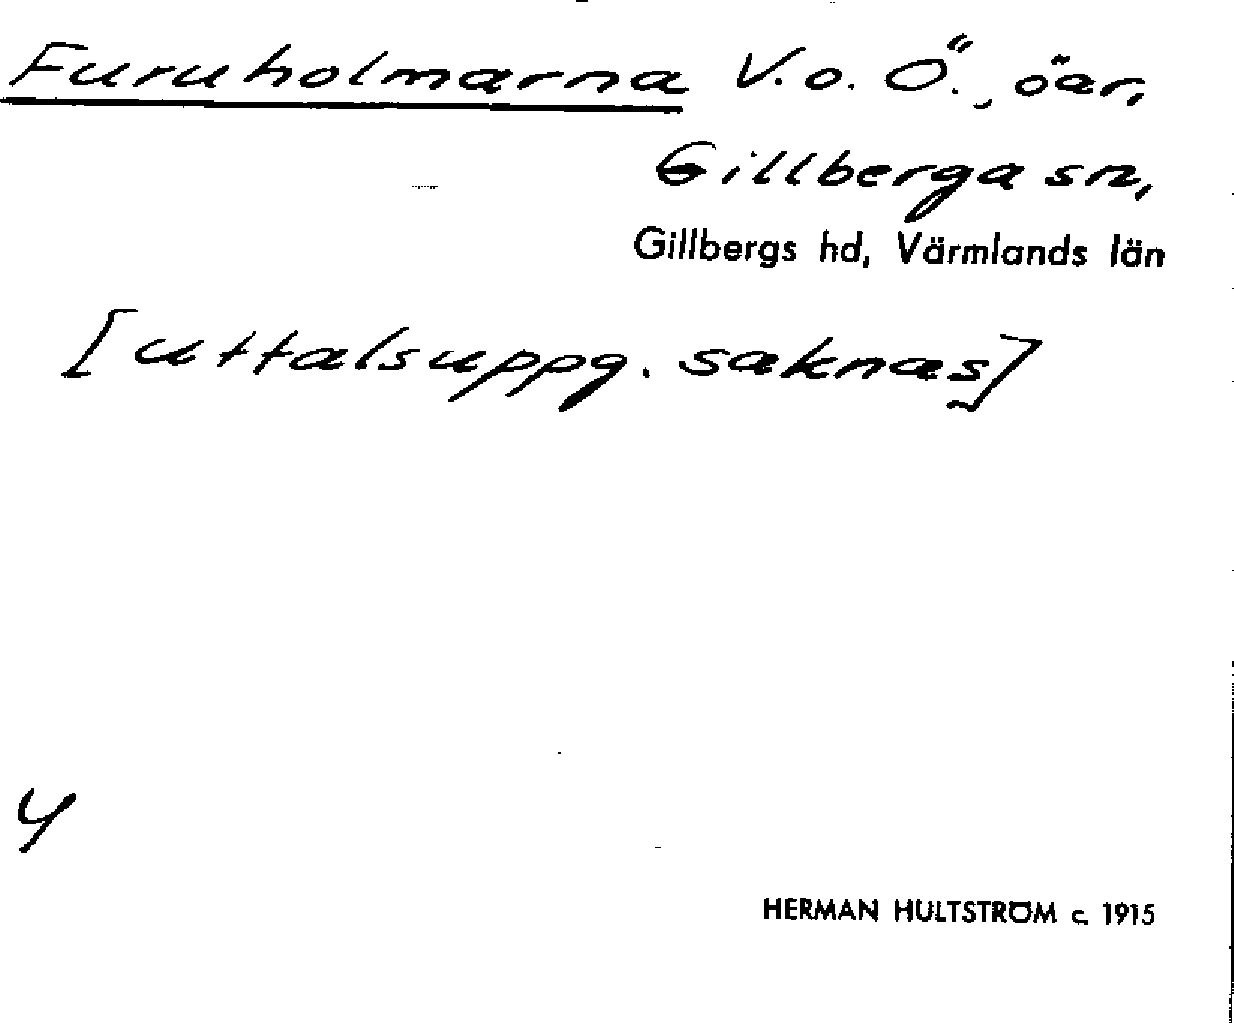 Furuholmarna V. o. Ö., öar,
Gillberga sn,
Gillbergs hd, Värmlands län
[uttalsuppg. saknas]
4
HERMAN HULTSTRÖM c. 1915